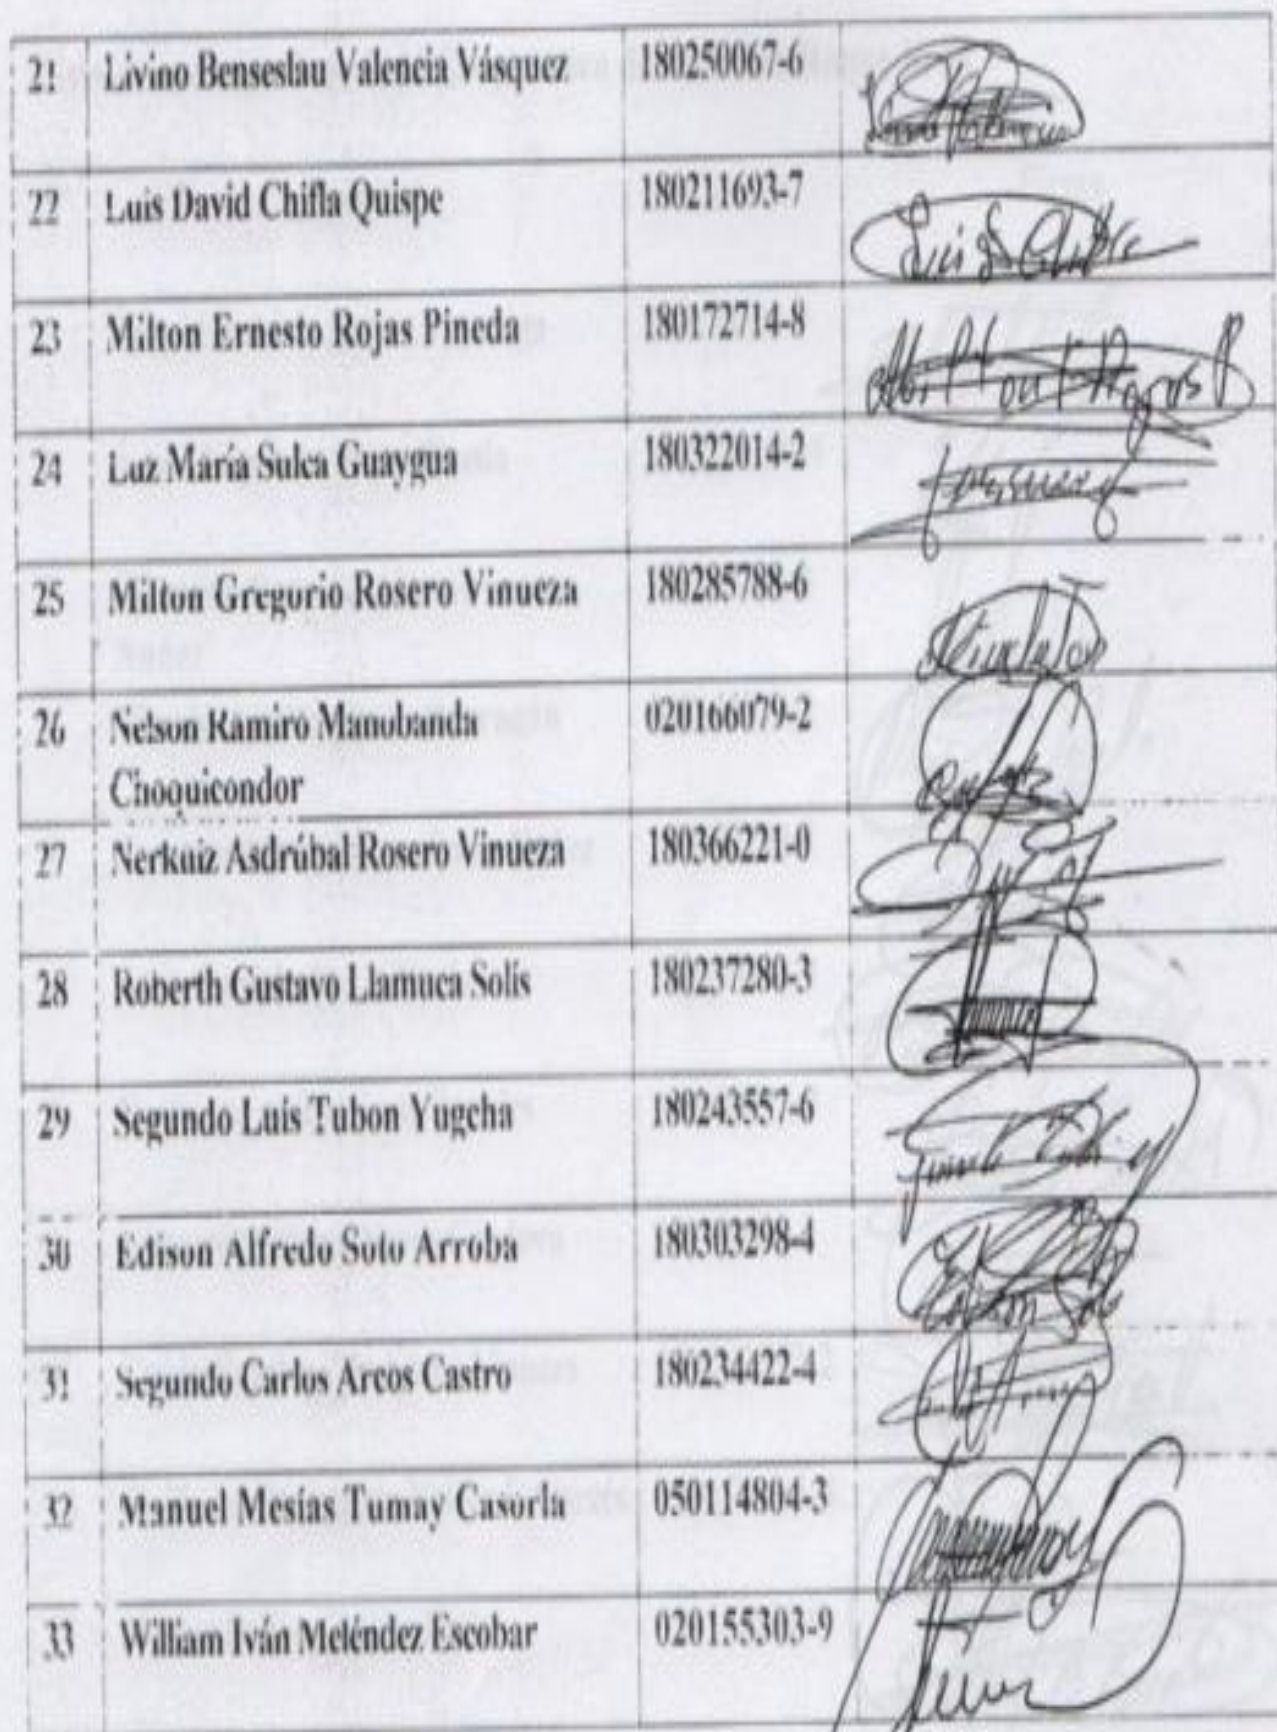 21 Livino Benseslau Valencia Vásquez 180250067-6
22 Luis David Chifla Quispe 180211693-7
23 Milton Ernesto Rojas Pineda 180172714-8
24 Luz María Sulca Guaygua 180322014-2
25 Milton Gregorio Rosero Vinueza 180285788-6
26 Nelson Ramiro Manobanda 020166079-2
Choquicondor
27 Nerkuiz Asdrúbal Rosero Vinueza 180366221-0
28 Roberth Gustavo Llamuca Solís 180237280-3
29 Segundo Luis Tubon Yugcha 180243557-6
30 Edison Alfredo Soto Arroba 180303298-4
31 Segundo Carlos Arcos Castro 180234422-4
32 Manuel Mesías Tumay Casorla 050114804-3
33 William Iván Meléndez Escobar 020155303-9